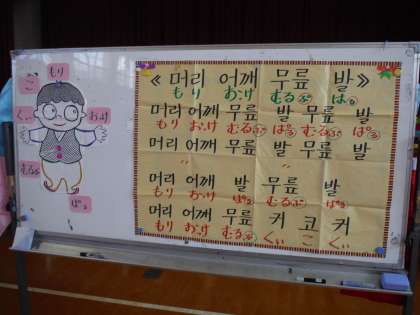 《머리 어깨 무릎 발》
もり おっけ むるぷ ぱる
머리 어깨 무릎 발 무릎 발
もり おっけ むるぷ ぱる むるぷ ぱる
머리 어깨 무릎 발 무릎 발
〃 〃
머리 어깨 발 무릎 발
もり おっけ ぱる むるぷ ぱる
머리 어깨 무릎 귀 코 귀
もり おっけ むるぷ くぃ こ くぃ
もり
こ
くぃ
おっけ
むるぷ
ぱる